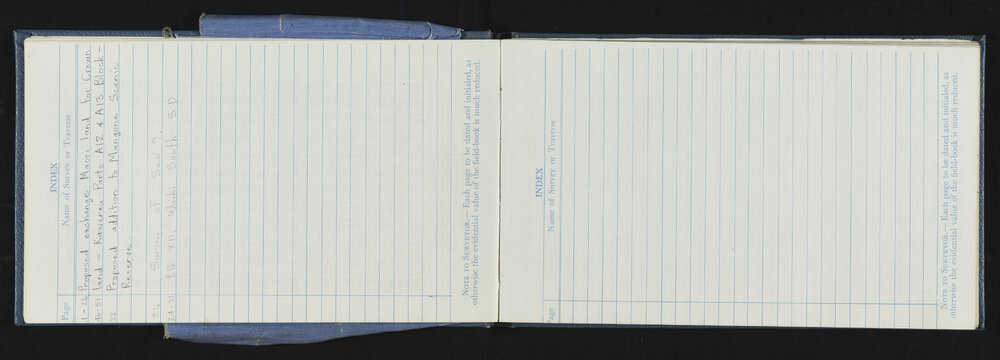 INDEX
Page Name of Survey or Traverse.
1-26 Proposed exchange Maori land for Crown
46-51 land - Kawerau Parts A12 & A13 Block -
22 Proposed addition to Mangone Scenic
Reserve.
21. Survey of Sec 9
24-31 Blk XII, Waihi South S D
NOTE TO SURVEYOR.— Each page to be dated and initialed, as
otherwise the evidential value of the field-book is much reduced.
INDEX
Page Name of Survey or Traverse
NOTE TO SURVEYOR.— Each page to be dated and initialed, as
otherwise the evidential value of the field-book is much reduced.